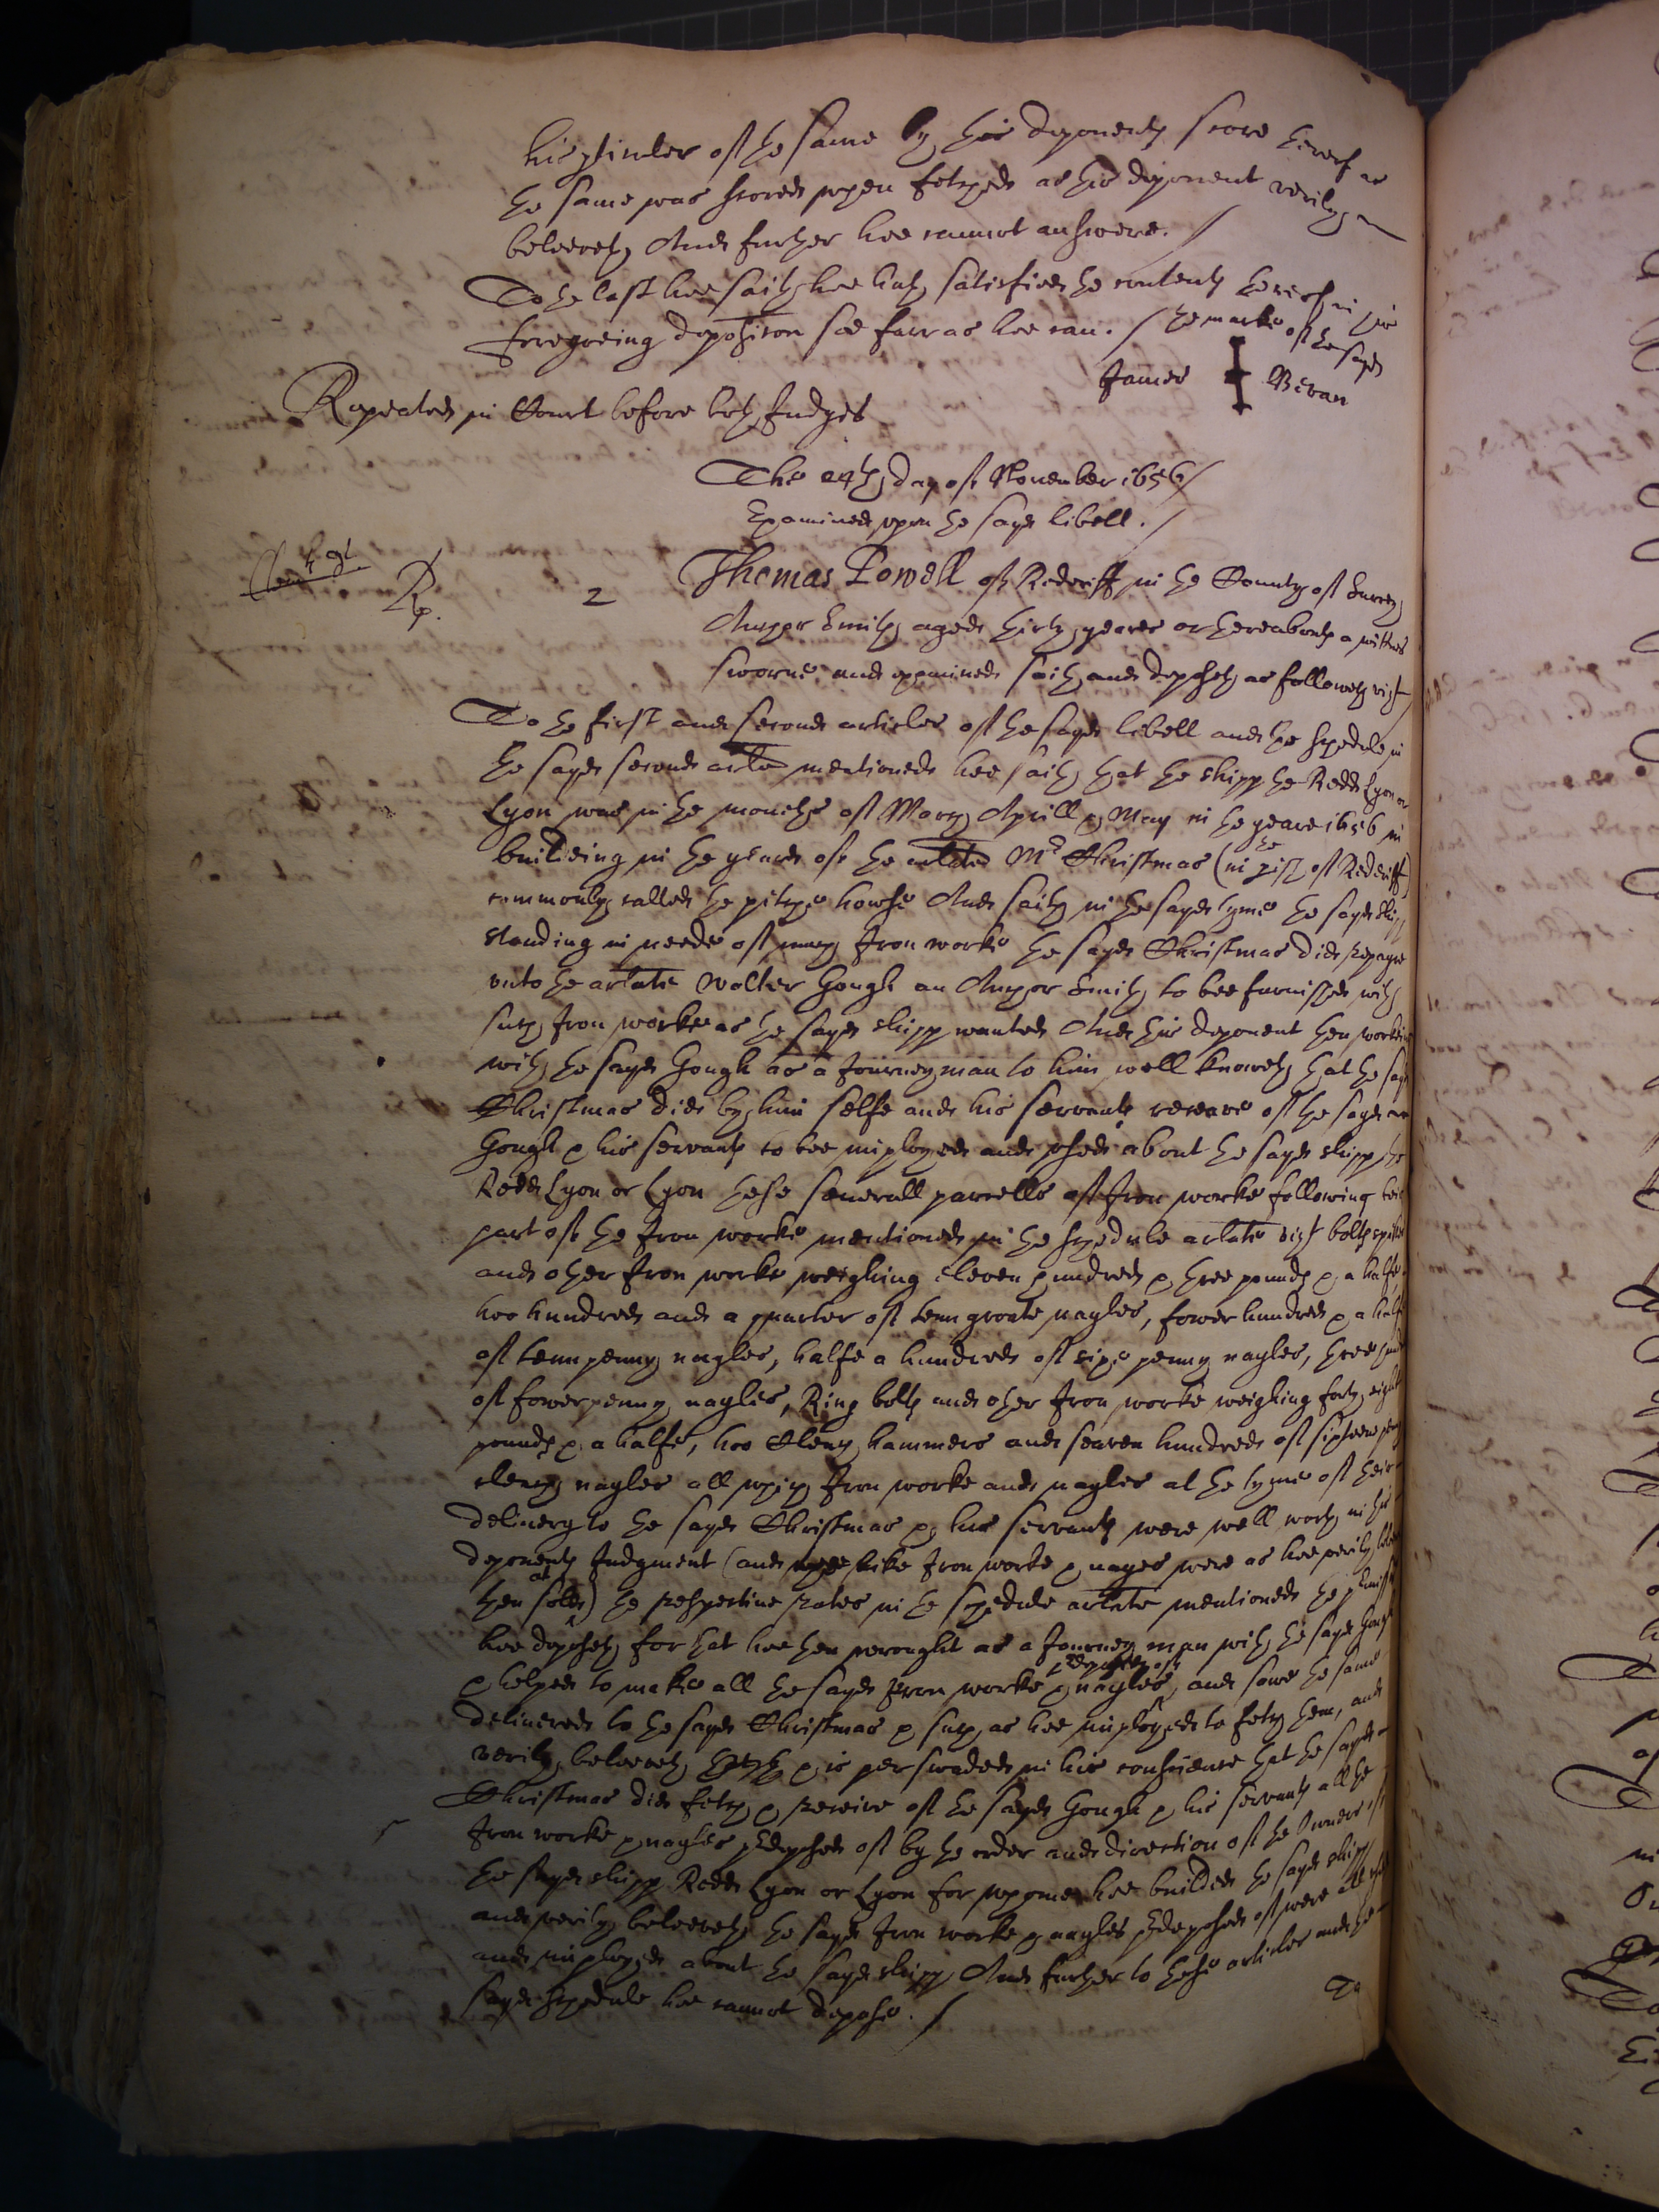 his ptinler of the same by this deponents score thereof as
the same was scored upon fetched as this deponent verily
beleeveth, And further hee cannot answere. /
To the last hee saith hee hath satisfied the contents thereof in his
foregoeing deposition soe farr as hee can. / The marke of the sayd
James Bevan
Repeated in Court before both Judges
The 24th day of November 1656 /
Examined upon the sayd libell. /
Rp. 2 Thomas Powell of Redriff in the County of Surrey
Anchor Smith, aged thirty yeares or thereabouts a wittnes
sworne and examined saith and deposeth as followeth vizt
To the first and second articles of the sayd libell and the schedule in
the sayd second arlate mentioned hee saith that the shipp the Redd Lyon or
Lyon was in the moneths of March Aprill & May in the yeare 1656 in
building in the yeard of the arlated Mr Christmas (in the pish of Redriff)
commonly called the pitche howse And saith in the sayd tyme the sayd shipp
standing in neede of much Iron worke the sayd Christmas did repayre
unto the arlate Walter Gough an Anchor Smith to bee furnished with
such Iron worke as the sayd shipp wanted And this deponent then working
with the sayd Gough as a Journeyman to him well knoweth that the sayd
Christmas did by him selfe and his servants receave of the sayd
Gough & his servants to bee imployed and used about the sayd shipp the
Redd Lyon or Lyon these severall parcells of Iron worke following being
part of the Iron worke mentioned in the schedule arlate vizt bolts spikes
and other Iron worke weighing eleven hundred & three pounds & a halfe
two hundred and a quarter of tenn groate nayles, fower hundred & a halfe
of tenn penny nayles, halfe a hundred of sixe penny nayles, three hund
of fower penny nayles, Ring bolts and other Iron worke weighing forty eight
pounds & a halfe, two Clench hammers and seaven hundred of sixteene peny
clench nayles all which Iron worke and nayles at the tyme of their
delivery to the sayd Christmas & his servants were well worth in this
deponents Judgment (and like Iron worke & nayes were as hee verily beleeveth
then sold at) the respective rates in the schedule arlate mentioned the premisses
hee deposeth for that hee then wrought as a Journey man with the sayd Gough
& helped to make all the sayd Iron worke & nayles predeposed of, and sawe the same
delivered to the sayd Christmas & such as hee imployed to fetch them, and
verily beleeveth & is perswaded in his conscience that the sayd
Christmas did fetch & receive of the sayd Gough & his servants all the
Iron worke & nayles predeposed of by the order and direction of the Owners of
the sayd shipp Redd Lyon or Lyon for whome hee builded the sayd shipp
and verily beleeveth the sayd Iron worke & nayles predeposed of were all used
and imployed about the sayd shipp, And further to these articles and the
sayd schedule hee cannot depose. /
To